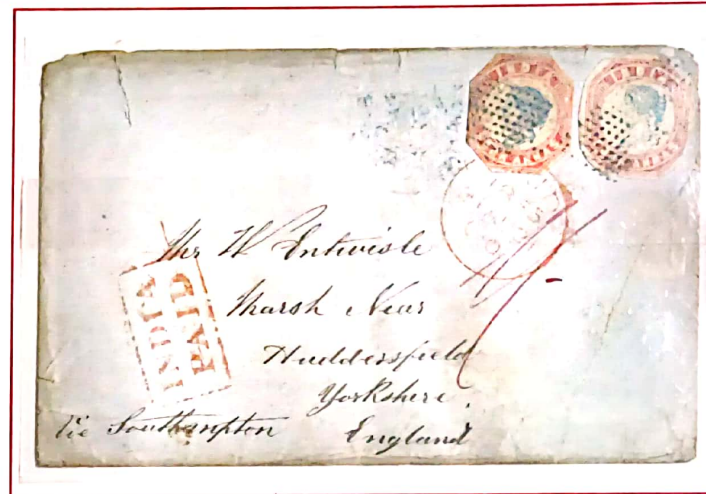 INDIA
INDIA
Mr W Entwisle
Marsh Near
Huddersfield
Yorkshire,
England
Via Southampton
INDIA
PAID
1/-